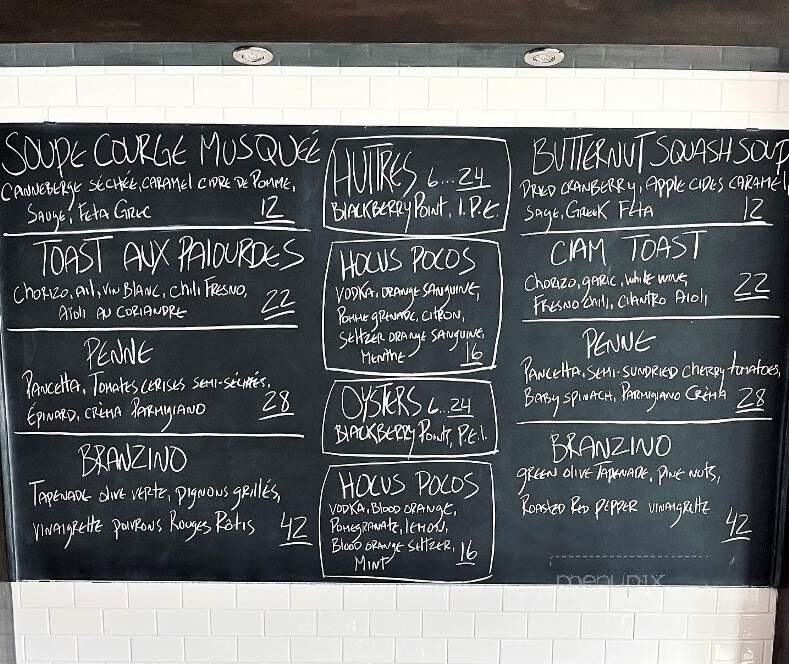 SOUPE COURGE MUSQUEÉ
CANNEBERGE SÉCHÉE, CARAMEL CIDRE DE POMME,
SAUGE, FETA GREC 12
TOAST AUX PALOURDES
CHORIZO, AIL, VIN BLANC, CHILI FRESNO,
AIOLI AU CORIANDRE 22
PENNE
PANCETTA, TOMATES CERISES SEMI-SÉCHÉES,
ÉPINARD, CRÈMA PARMIGIANO 28
BRANZINO
TAPENADE OLIVE VERTE, PIGNONS GRILLÉS,
VINAIGRETTE POIVRONS ROUGES RÔTIS 42
HUITRES 6...24
BLACKBERRY POINT, I.P.E.
HOCUS POCUS
VODKA, ORANGE SANGUINE,
POMME GRENADE, CITRON,
SELTZER ORANGE SANGUINE,
MENTHE 16
OYSTERS 6...24
BLACKBERRY POINT, P.E.I.
HOCUS POCUS
VODKA, BLOOD ORANGE,
POMEGRANATE, LEMON,
BLOOD ORANGE SELTZER,
MINT 16
BUTTERNUT SQUASH SOUP
DRIED CRANBERRY, APPLE CIDER CARAMEL
SAGE, GREEK FETA 12
CLAM TOAST
CHORIZO, GARIC, WHITE WINE,
FRESNO CHILI, CILANTRO AIOLI 22
PENNE
PANCETTA, SEMI-SUNDRIED CHERRY TOMATOES,
BABY SPINACH, PARMIGIANO CRÈMA 28
BRANZINO
GREEN OLIVE TAPENADE, PINE NUTS,
ROASTED RED PEPPER VINAIGRETTE
42
menupix